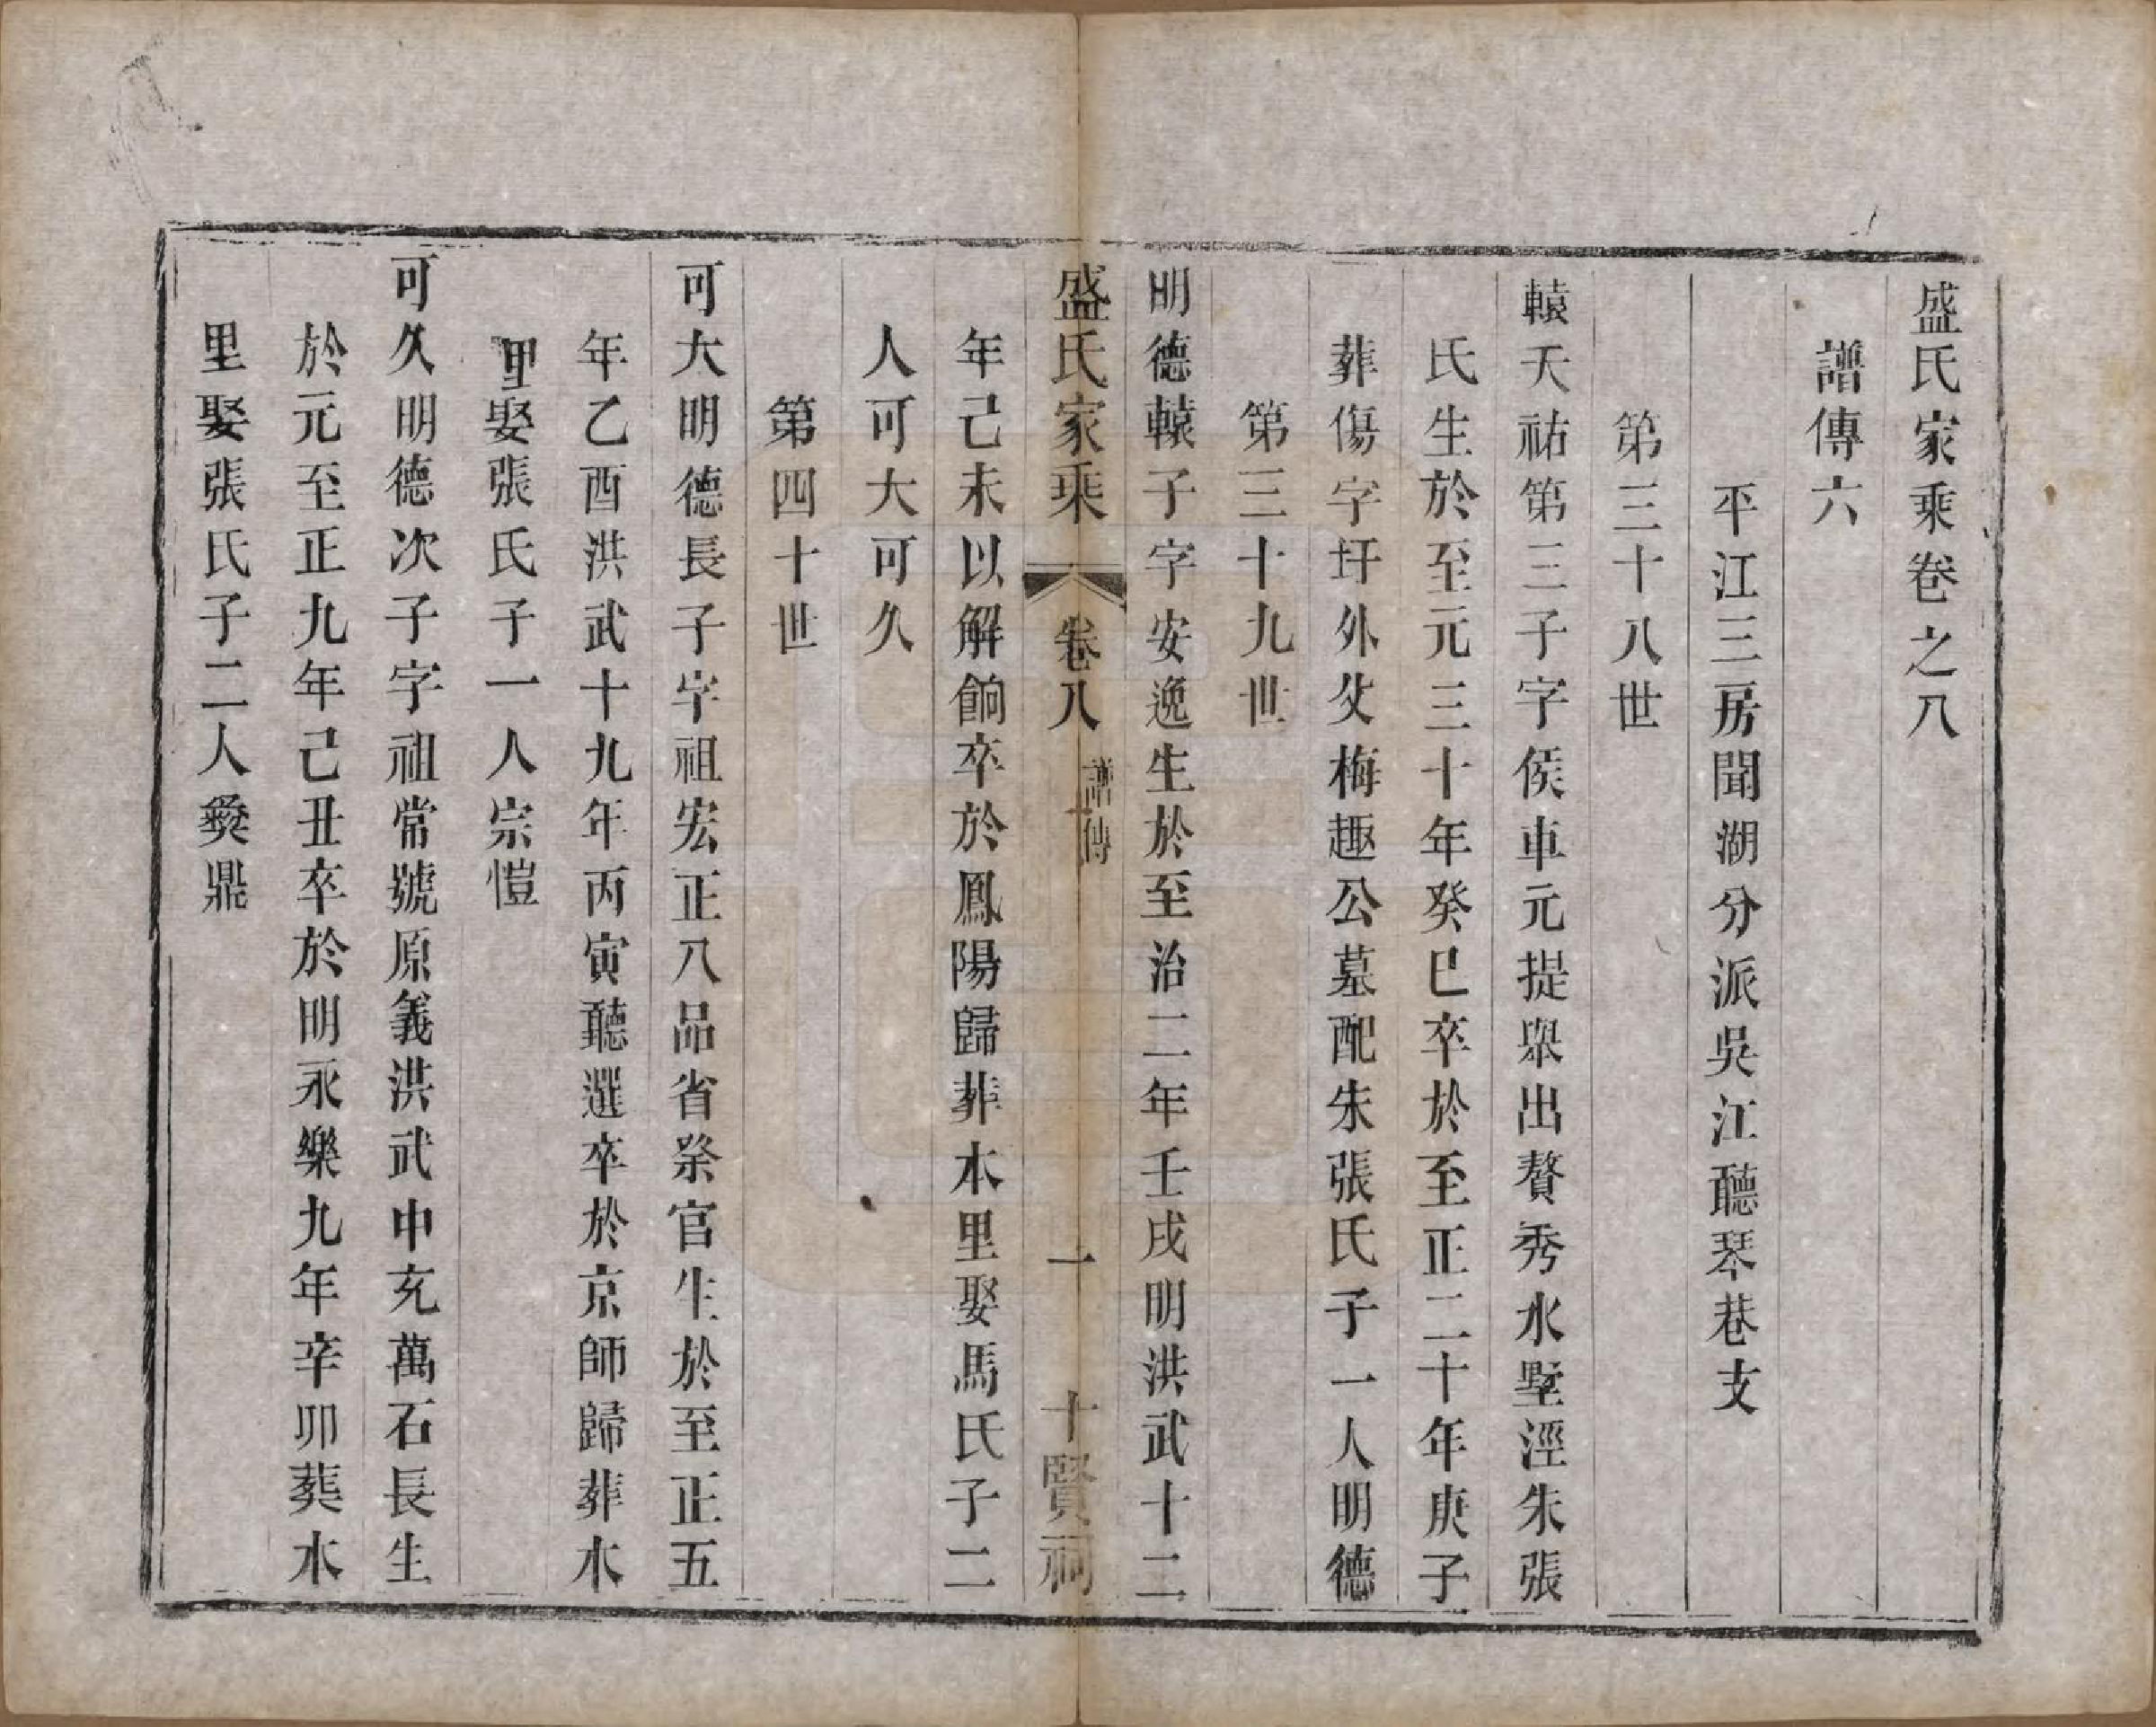 盛氏家乘卷之八
譜傳六
平江三房聞湖分派吳江聽琴巷支
第三十八世
轅天祐第三子字侯車元提舉出贅秀水墅涇朱張
氏生於至元三十年癸巳卒於至正二十年庚子
葬傷字圩外父梅趣公墓配朱張氏子一人明德
第三十九世
明德轅子字安逸生於至治二年壬戌明洪武十二
盛氏家乘 卷八 譜傳 一 十賢祠
年己未以解餉卒於鳳陽歸葬本里娶馬氏子二
人可大可久
第四十世
可大明德長子字祖宏正八品省祭官生於至正五
年乙酉洪武十九年丙寅聽選卒於京師歸葬本
里娶張氏子一人宗愷
可久明德次子字祖常號原義洪武中充萬石長生
於元至正九年己丑卒於明永樂九年辛卯葬本
里娶張氏子二人奫鼎